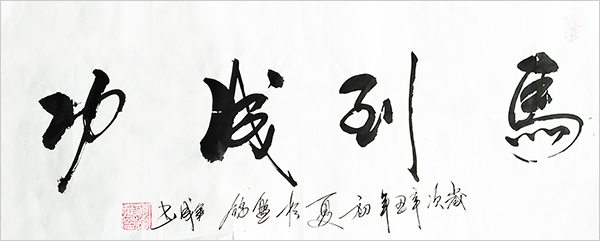 馬到成功
歲次辛丑年初夏於盤錦